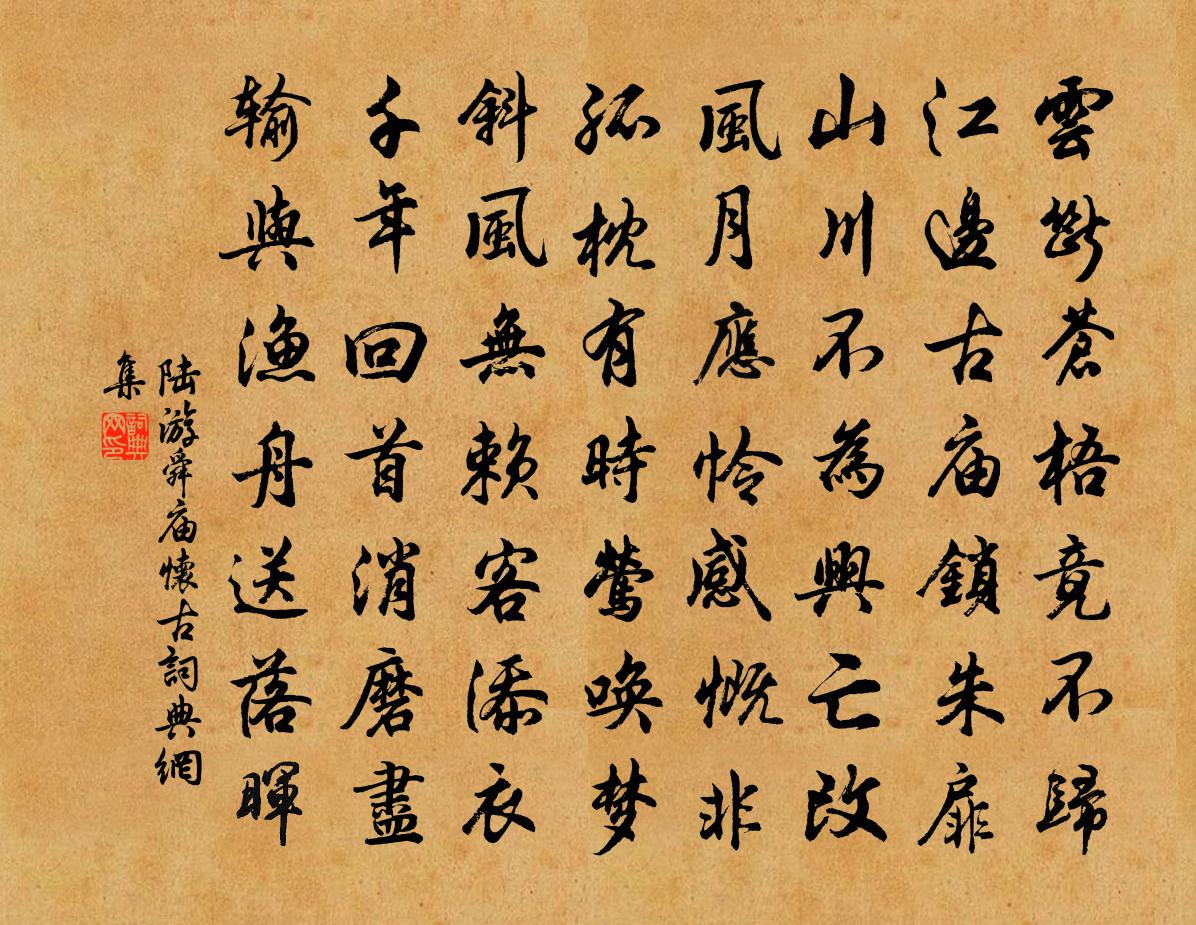 雲斷蒼梧竟不歸
江邊古庙鎖朱扉
山川不為興亡改
風月應怜感慨非
孤枕有時鶯唤梦
斜風無賴客添衣
千年回首消磨盡
输與漁舟送落暉
陸游舜庙懷古詞典網
集
詞典
网印